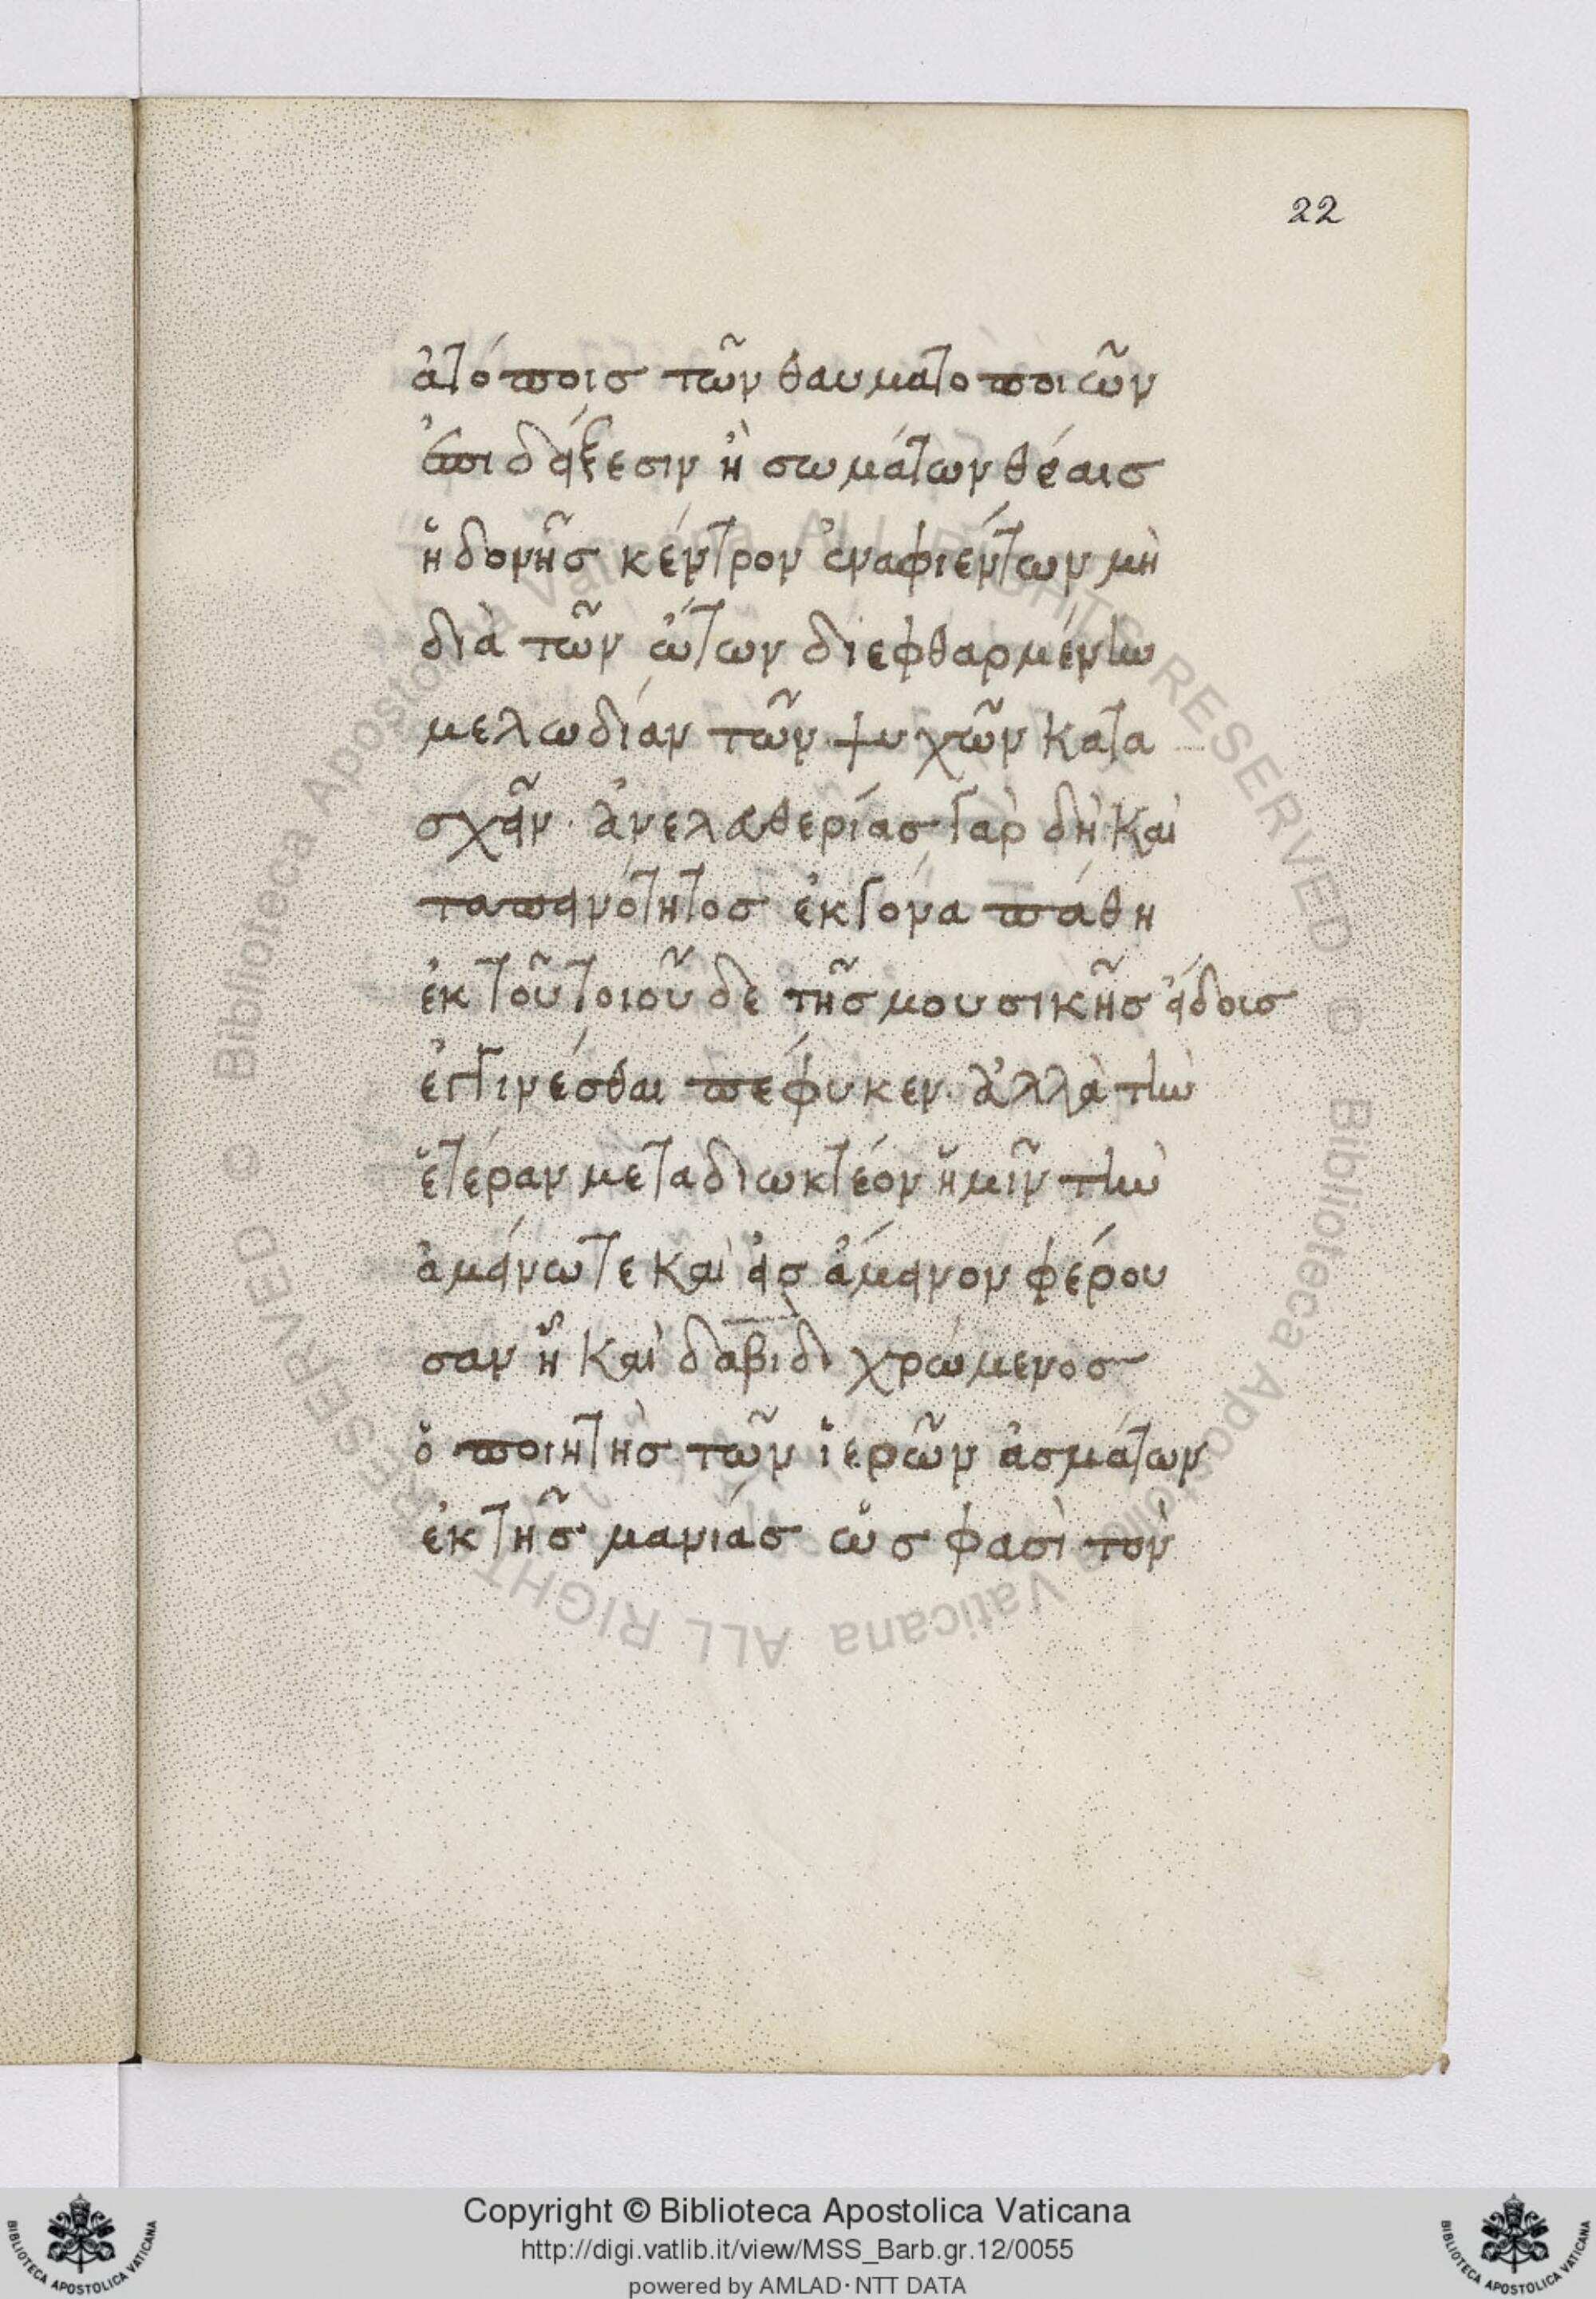 22
ἀτόποις τῶν θαυματοποιῶν
ἐπιδείξεσιν ἢ σωμάτων θέαις
ἡδονῆς κέντρον ἐναφιέντων μὴ
διὰ τῶν ὤτων διεφθαρμένην
μελωδίαν τῶν ψυχῶν κατα
σχεῖν· ἀνελευθερίας γὰρ δὴ καὶ
ταπεινότητος ἔκγονα πάθη
ἐκ τοῦ τοιοῦδε τῆς μουσικῆς εἴδους
ἐγγινέσθαι πέφυκεν· ἀλλὰ τὴν
ἑτέραν μεταδιωκτέον ἡμῖν τὴν
ἀμείνω τε καὶ εἰς ἄμεινον φέρου
σαν ἧ καὶ δαβὶδ χρώμενος
ὁ ποιητὴς τῶν ἱερῶν ἀσμάτων
ἐκ τῆς μανίας ὥς φασὶ τὸν
© Biblioteca Apostolica Vaticana ALL RIGHTS RESERVED © Biblioteca Apostolica Vaticana ALL RIGHTS RESERVED
BIBLIOTECA APOSTOLICA VATICANA
Copyright © Biblioteca Apostolica Vaticana
http://digi.vatlib.it/view/MSS_Barb.gr.12/0055
powered by AMLAD·NTT DATA
BIBLIOTECA APOSTOLICA VATICANA